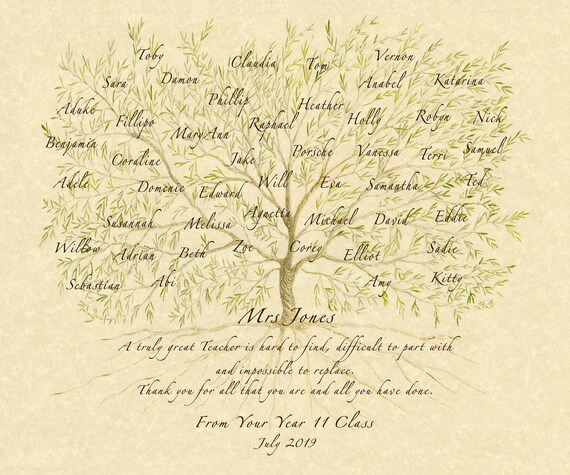 Toby Claudia Tom Vernon
Sara Damon Anabel Katarina
Aduke Phillip Heather
Fillipo MaryAnn Raphael Holly Robyn Nick
Benjamin Coraline Jake Porsche Vanessa Terri Samuel
Adele Domenic Edward Will Eva Samantha Ted
Susannah Melissa Agnetta Michael David Eddie
Willow Adrian Beth Zoe Corey Elliot Sadie
Sebastian Abi Amy Kitty
Mrs Jones
A truly great Teacher is hard to find, difficult to part with
and impossible to replace.
Thank you for all that you are and all you have done.
From Your Year 11 Class
July 2019